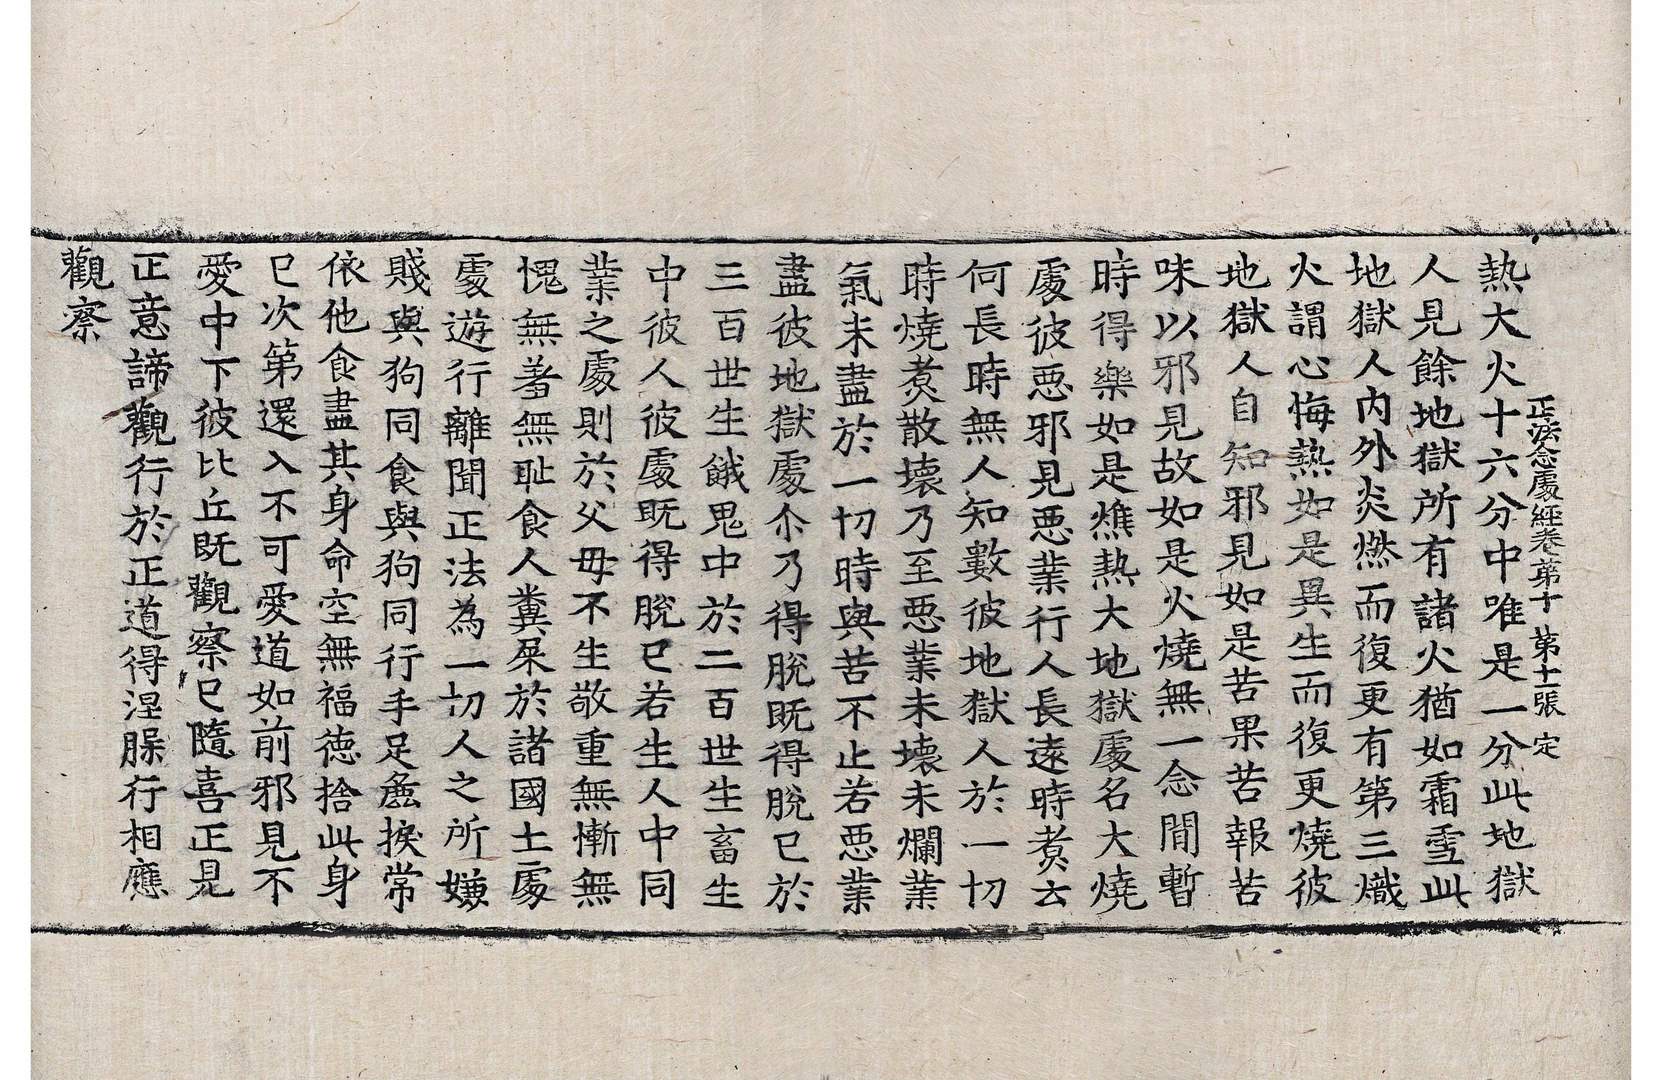 正法念處經卷第十 第十一張 定
熱大火十六分中唯是一分此地獄
人見餘地獄所有諸火猶如霜雪此
地獄人內外炎燃而復更有第三熾
火謂心悔熱如是異生而復更燒彼
地獄人自知邪見如是苦果苦報苦
味以邪見故如是火燒無一念間暫
時得樂如是燋熱大地獄處名大燒
處彼惡邪見惡業行人長遠時煮去
何長時無人知數彼地獄人於一切
時燒煮散壞乃至惡業未壞未爛業
氣未盡於一切時與苦不止若惡業
盡彼地獄處尒乃得脫既得脫已於
三百世生餓鬼中於二百世生畜生
中彼人彼處既得脫已若生人中同
業之處則於父母不生敬重無慚無
愧無羞無耻食人糞屎於諸國土處
處遊行離聞正法為一切人之所嫌
賤與狗同食與狗同行手足麁捩常
依他食盡其身命空無福德捨此身
已次第還入不可愛道如前邪見不
愛中下彼比丘既觀察已隨喜正見
正意諦觀行於正道得涅槃行相應
觀察